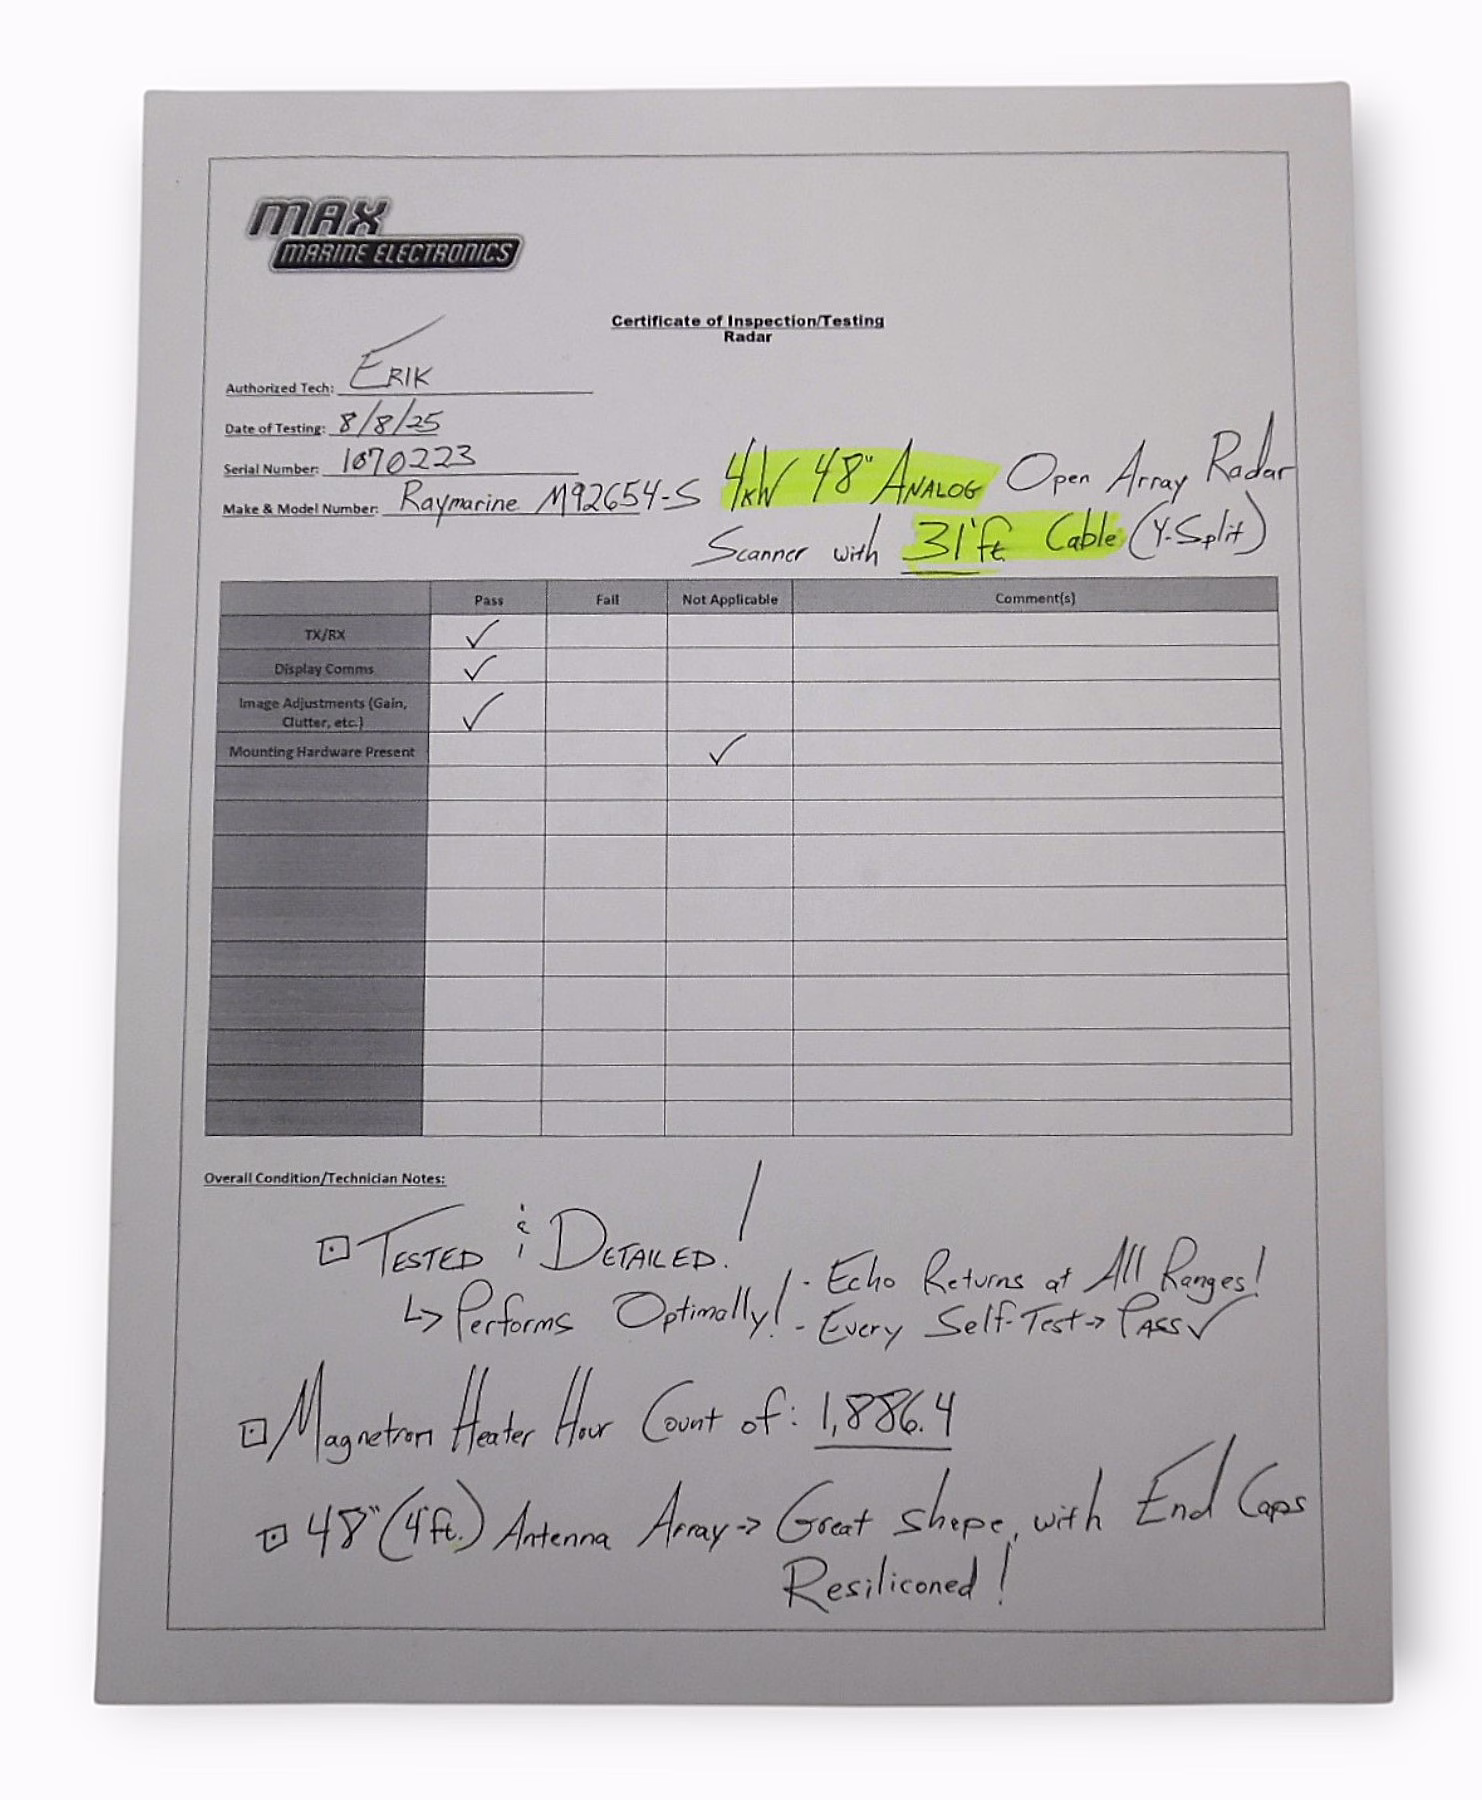 MAX
MARINE ELECTRONICS
Certificate of Inspection/Testing
Radar
Authorized Tech: ERIK
Date of Testing: 8/8/25
Serial Number: 1070223
Make & Model Number: Raymarine M92654-S 4kW 48" ANALOG Open Array Radar
Scanner with 31'ft Cable (Y-Split)
Pass Fail Not Applicable Comment(s)
TX/RX ✓
Display Comms ✓
Image Adjustments (Gain,
Clutter, etc.) ✓
Mounting Hardware Present ✓
Overall Condition/Technician Notes:
⊡ TESTED & DETAILED!
↳ Performs Optimally! - Echo Returns at All Ranges!
- Every Self-Test → PASS ✓
⊡ Magnetron Heater Hour Count of: 1,886.4
⊡ 48" (4ft.) Antenna Array → Great shape, with End Caps
Resiliconed!